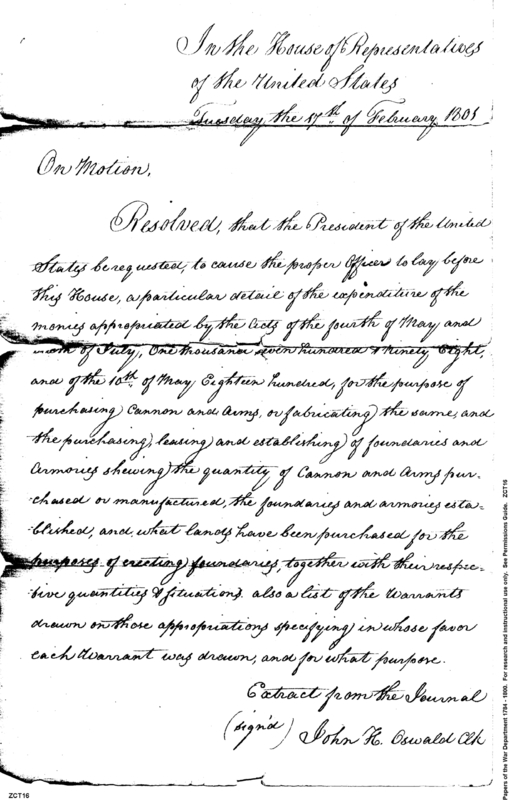 In the House of Representatives
of the United States
Tuesday, the 17th of February, 1801
On Motion,
Resolved, that the President of the United
States be requested, to cause the proper Officer to lay before
this House, a particular detail of the expenditure of the
monies appropriated by the Acts of the fourth of May and
of July, One thousand seven hundred & Ninety Eight,
and of the 10th of May Eighteen hundred, for the purpose of
purchasing Cannon and Arms, or fabricating the same, and
the purchasing, leasing and establishing of foundaries and
Armories shewing the quantity of Cannon and Arms pur-
chased or manufactured, the foundaries and armories esta-
blished, and, what lands have been purchased for the
purposes of erecting foundaries, together with their respec-
tive quantities & situations. also a list of the Warrants
drawn on those appropriations specifying in whose favor
each Warrant was drawn, and for what purpose.
Extract from the Journal
(sign'd) John H. Oswald Clk
ZCT16
Papers of the War Department 1784 - 1800. For research and instructional use only. See Permissions Guide. ZCT16